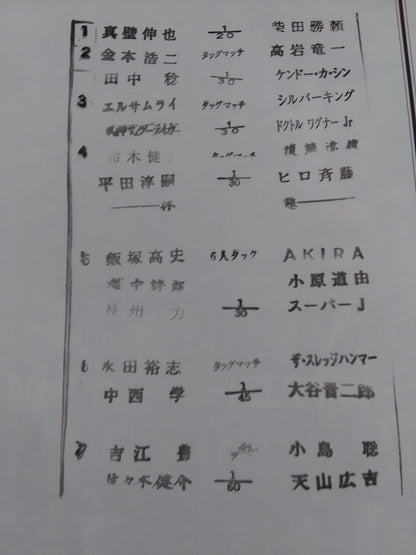 1 真壁伸也 1/20 柴田勝頼
2 金本浩二 タッグマッチ 高岩竜一
田中 稔 1/30 ケンドー・カ・シン
3 エルサムライ タッグマッチ シルバーキング
1/30 ドクトル ワグナー Jr
4 鈴木健 タッグマッチ
平田淳嗣 1/30 ヒロ斉藤
――休 憩――
5 飯塚高史 6人タッグ AKIRA
越中詩郎 小原道由
長州 力 1/30 スーパーJ
6 永田裕志 タッグマッチ ザ・スレッジハンマー
中西 学 1/45 大谷晋二郎
7 吉江 豊 小島 聡
佐々木健介 1/60 天山広吉